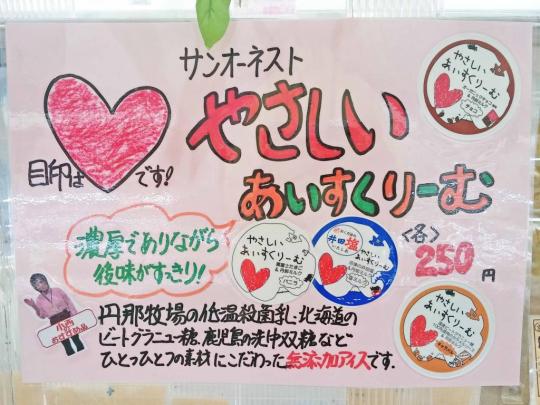 サンオーネスト
やさしい
あいすくりーむ
目印は
です!
濃厚でありながら
後味がすっきり!
<各>
250円
円那牧場の低温殺菌乳、北海道の
ビートグラニュー糖、鹿児島の洗中双糖など
ひとつひとつの素材にこだわった無添加アイスです。
やさしい
あいすくりーむ
チョコ
やさしい
あいすくりーむ
バニラ
井田塩
やさしい
あいすくりーむ
やさしい
あいすくりーむ